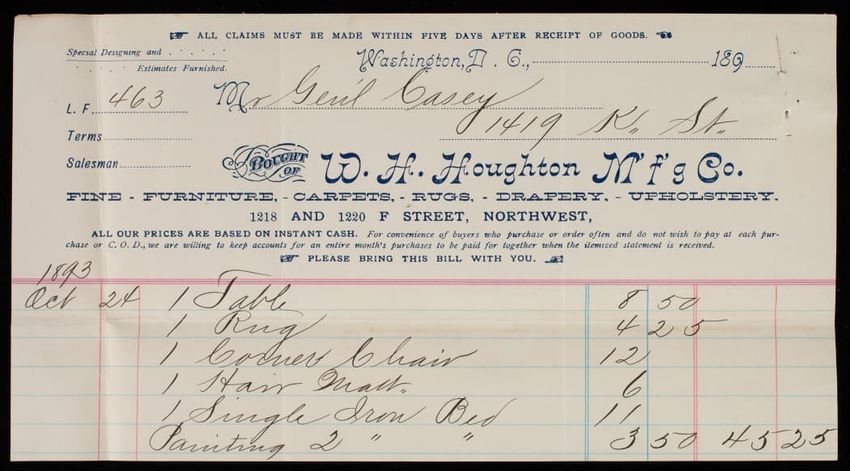 ALL CLAIMS MUST BE MADE WITHIN FIVE DAYS AFTER RECEIPT OF GOODS.
Special Designing and
Estimates Furnished.
Washington, D. C., 189
L. F. 463
Mr Gen'l Casey
1419 K. St.
Terms
Salesman
BOUGHT OF W. H. Houghton M'f'g Co.
FINE - FURNITURE, - CARPETS, - RUGS, - DRAPERY, - UPHOLSTERY.
1218 AND 1220 F STREET, NORTHWEST,
ALL OUR PRICES ARE BASED ON INSTANT CASH. For convenience of buyers who purchase or order often and do not wish to pay at each pur-
chase or C. O. D., we are willing to keep accounts for an entire month's purchases to be paid for together when the itemized statement is received.
PLEASE BRING THIS BILL WITH YOU.
1893
Oct 24 1 Table 8 50
1 Rug 4 25
1 Corner Chair 12
1 Hair Matt. 6
1 Single Iron Bed 11
Painting 2 " " 3 50 45 25